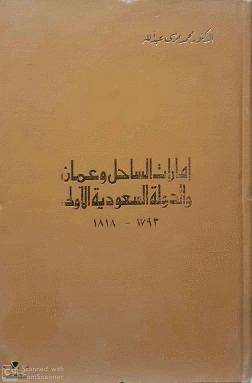 الدكتور محمد مرسى عبدالله
إمارات الساحل وعمان
والدولة السعودية الأولى
١٧٩٣ - ١٨١٨
Scanned with
CamScanner